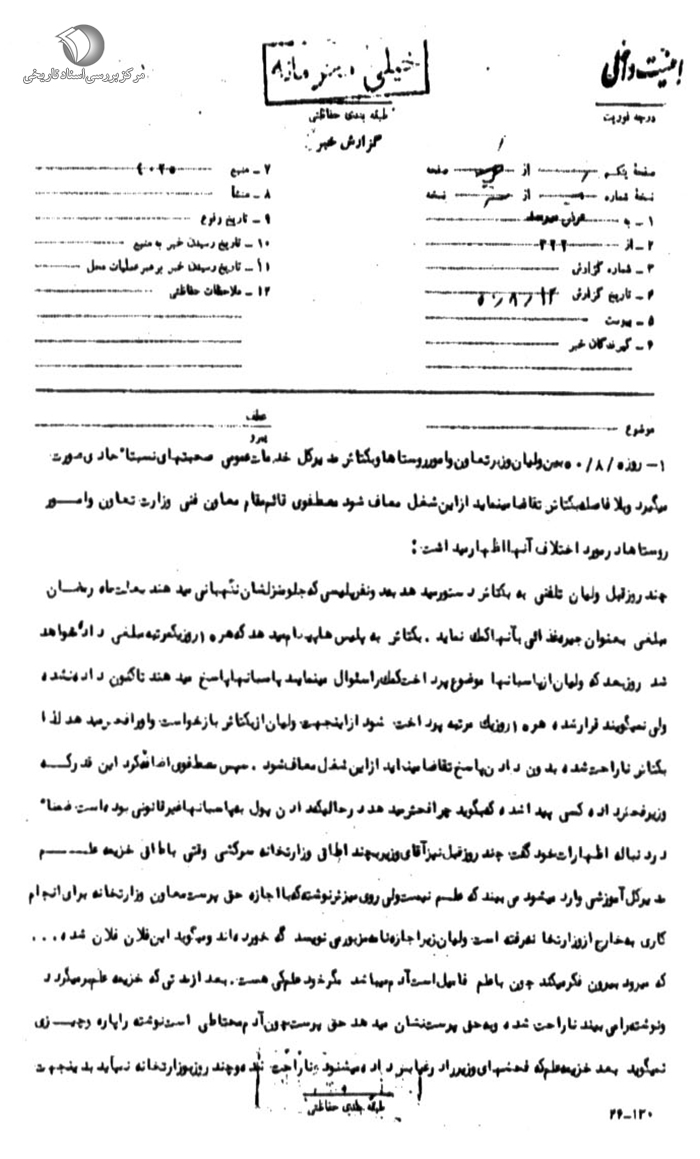 مرکز بررسی اسناد تاریخی
امنیت داخلی
خیلی محرمانه
درجه فوریت
طبقه بندی حفاظتی
گزارش خبر
صفحه یکم از صفحه
نسخه شماره از نسخه
۱ـ به
۲ـ از ۳۲۲
۳ـ شماره گزارش
۴ـ تاریخ گزارش ۵۰/۸/۱۲
۵ـ پیوست
۶ـ گیرندگان خبر
۷ـ منبع
۸ـ منشأ
۹ـ تاریخ وقوع
۱۰ـ تاریخ رسیدن خبر به منبع
۱۱ـ تاریخ رسیدن خبر برهبر عملیات محل
۱۲ـ ملاحظات حفاظتی
موضوع
عطف
پیرو
۱ـ روز ۵۰/۸/۵ بین ولیان وزیر تعاون و امور روستاها و بکتاش مدیرکل خدمات عمومی صحبتهای نسبتاً حادی صورت
میگیرد و بلافاصله بکتاش تقاضا مینماید از این شغل معاف شود مصطفوی قائم مقام معاون فنی وزارت تعاون و امور
روستاها در مورد اختلاف آنها اظهار میداشت :
چند روز قبل ولیان تلفنی به بکتاش دستور میدهد بعد ونفر پلیسی که جلو منزلشان نگهبانی میدهند بمناسبت ماه رمضان
مبلغی بعنوان جیره غذائی بآنها کمک نماید . بکتاش به پلیس ها پیام میدهد که هر ۱۰ روز یکمرتبه مبلغی داده خواهد
شد روز بعد که ولیان از پاسبانها موضوع پرداخت کمک را سئوال مینماید پاسبانها پاسخ میدهند تاکنون داده نشده
ولی نمیگویند قرار شده هر ۱۰ روز یک مرتبه پرداخت شود از اینجهت ولیان از بکتاش بازخواست و او را فحش میدهد لذا
بکتاش ناراحت شده بدون دادن پاسخ تقاضا مینماید از این شغل معاف شود . سپس مصطفوی اضافه کرد این قدر که
وزیر فحش داده کسی پیدا نشده که بگوید چرا فحش میدهد در حالیکه دادن پول به پاسبانها غیرقانونی بوده است ضمناً
در دنباله اظهارات خود گفت چند روز قبل نیز آقای وزیر به چند اطاق وزارتخانه سرکشی وقتی باطاق خزیمه علم
مدیرکل آموزشی وارد میشود می بیند که علم نیست ولی روی میزش نوشته که با اجازه حق پرست معاون وزارتخانه برای انجام
کاری به خارج از وزارتخانه رفته است ولیان زیر اجازه نامه مزبور می نویسد گه خورده اند و میگوید این فلان فلان شده ...
که میرود بیرون فکر میکند چون با علم فامیل است آدم میباشد مگر خود علم کی هست . بعد از مدتی که خزیمه علم برمیگردد
و نوشته را می بیند ناراحت شده و به حق پرست نشان میدهد حق پرست چون آدم محتاطی است نوشته را پاره و چیزی
نمیگوید بعد خزیمه علم که فحشهای وزیر را در غیابش داده میشنود ناراحت شده و چند روز بوزارتخانه نمیاید بدینجهت
طبقه بندی حفاظتی
۲۶ـ۱۲۰